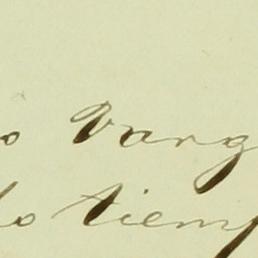 o Varg
do tiemp